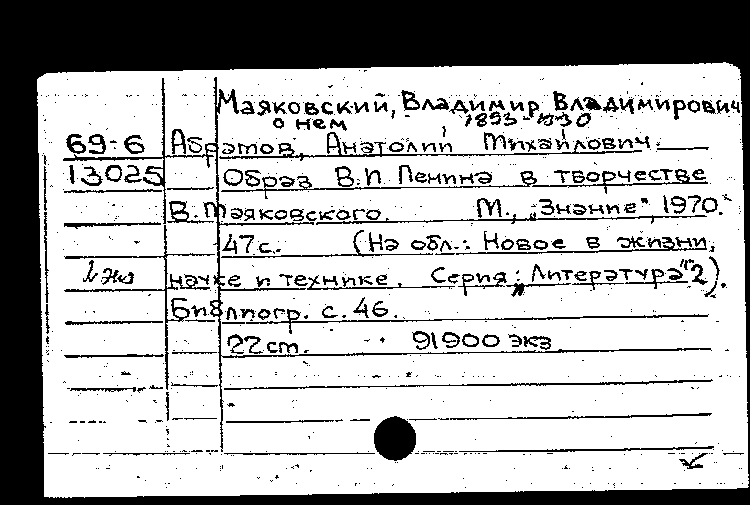 Маяковский, Владимир Владимирович
о нем 1893-1930
69-6 Абрамов, Анатолий Михайлович.
13025 Образ В.И. Ленина в творчестве
В. Маяковского. М., „Знание", 1970.
47с. (На обл.: Новое в жизни,
2 экз науке и технике. Серия: „Литература" 2).
Библиогр. с. 46.
22 ст. 91900 экз.